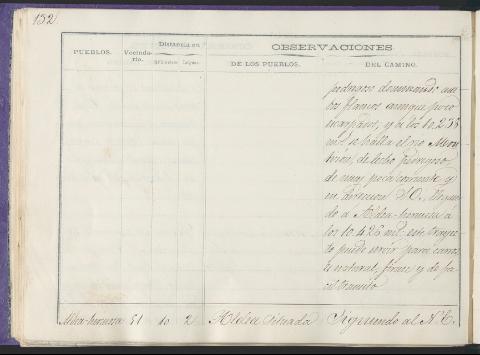 132
PUEBLOS.
Vecindario.
Distancia en
Kilómetros
Leguas.
OBSERVACIONES
DE LOS PUEBLOS.
DEL CAMINO.
pedregoso dominando am
bos flancos aunque poco
escarpados, y a los 10.258
mt. se halla el rio
de lecho pedregoso,
de muy poca corriente y
en direccion S.O. llegan
do a Aldea-hermosa a
los 10.426 mt. este trayec
to puede servir para carros
es natural, firme y de fa
cil transito
Aldea-hermosa 51 10 2 Aldea situada Siguiendo al N.E.